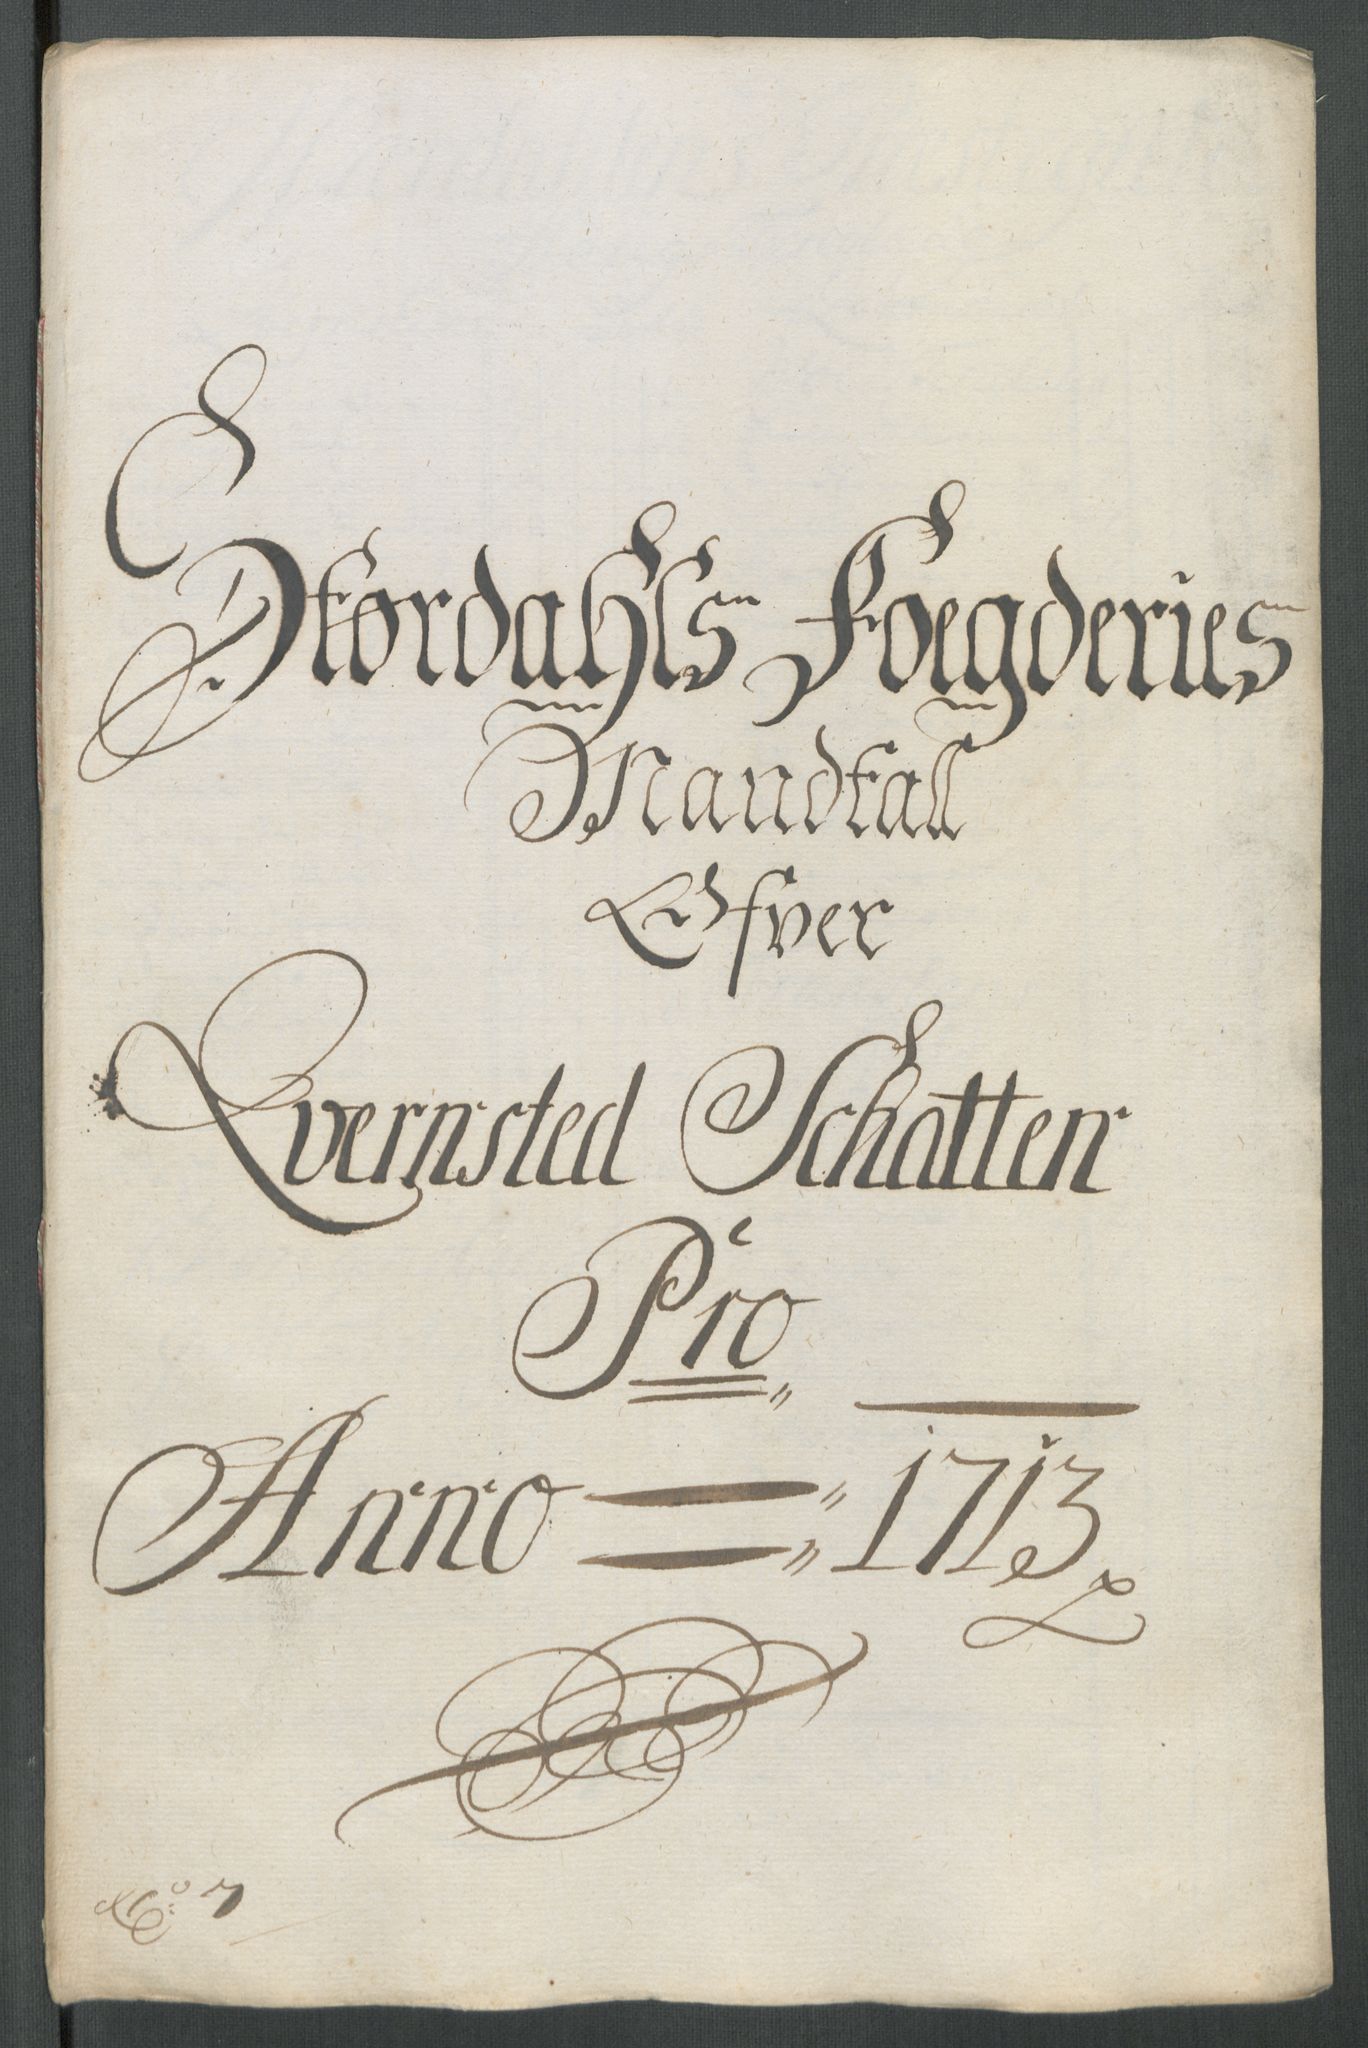 Størdahls Foegderies
Mandtall
Ofver
Qvernsted Schatten
Pro
Anno 1713
No 7